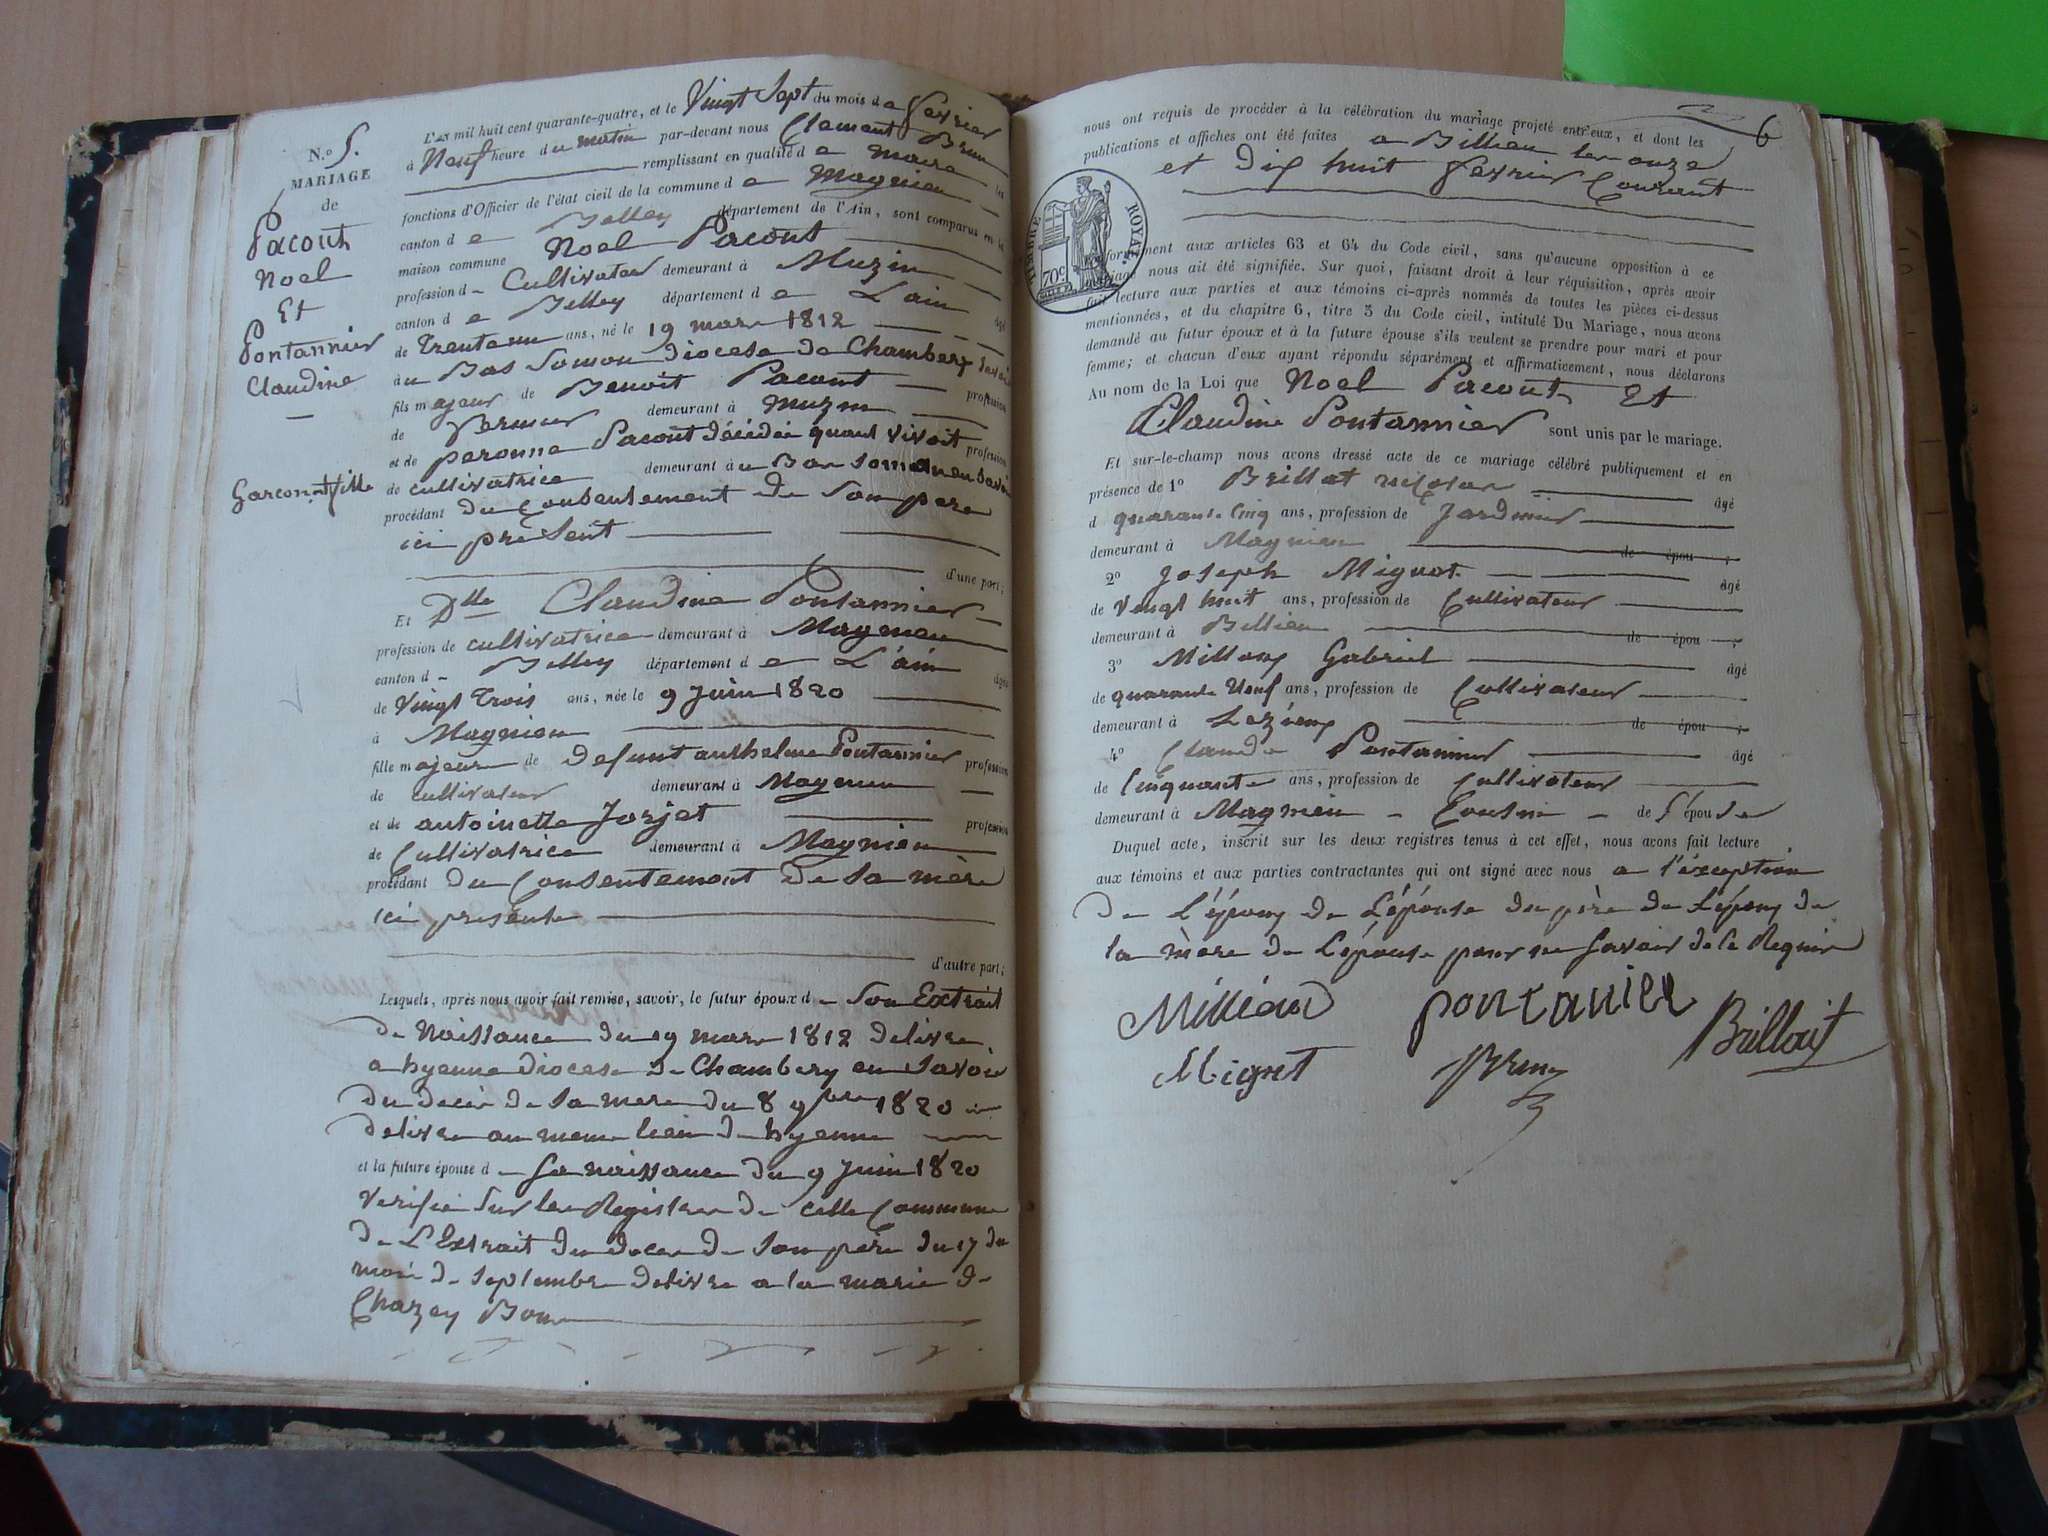 N.o 5.
MARIAGE
de
Pacout
Noel
Et
Pontannier
Claudine
Garcon et fille
L'an mil huit cent quarante-quatre, et le Vingt Sept du mois de fevrier
à Neuf heure du matin par-devant nous Clement Brun
remplissant en qualité de maire les
fonctions d'Officier de l'état civil de la commune de Magnieu
canton de Belley département de l'Ain, sont comparus en la
maison commune Noel Pacout
profession d- Cultivateur demeurant à Muzin
canton de Belley département de L'ain âgé
de Trente un ans, né le 19 mars 1812
à u Bas Somon diocese de Chambery
fils majeur de Benoit Pacout profession
de demeurant à Muzin
et de peronne Pacout décédée quant vivoit profession
de cultivatrice demeurant à u Bas
procédant du Consentement de Son pere
ici présent
d'une part;
Et Dlle Claudine Pontannier
profession de cultivatrice demeurant à Magnieu
canton d- Belley département de L'ain âgée
de Vingt Trois ans, née le 9 Juin 1820
à Magnieu
fille majeure de defunt anthelme Pontannier profession
de cultivateur demeurant à Magnieu
et de antoinette Jorjet profession
de Cultivatrice demeurant à Magnieu
procédant du Consentement de Sa mère
ici presente
d'autre part;
Lesquels, après nous avoir fait remise, savoir, le futur époux de Son Extrait
de Naissance du 19 mars 1812 delivre
a hyenne diocese de Chambery en Savoie
du decès de Sa mere du 8 9bre 1820
delivre au meme lieu de hyenne
et la future épouse de Sa naissance du 9 Juin 1820
Verifie Sur les Registres de cette Commune
de L'Extrait du deces de Son père du 17 du
mois de Septembre delivre a la marie de
Chazey Bons
6
nous ont requis de procéder à la célébration du mariage projeté entr'eux, et dont les
publications et affiches ont été faites a Billieu les onze
et dix huit fevrier Courant
TIMBRE ROYAL
70c
formément aux articles 63 et 64 du Code civil, sans qu'aucune opposition à ce
mariage nous ait été signifiée. Sur quoi, faisant droit à leur réquisition, après avoir
fait lecture aux parties et aux témoins ci-après nommés de toutes les pièces ci-dessus
mentionnées, et du chapitre 6, titre 5 du Code civil, intitulé Du Mariage, nous avons
demandé au futur époux et à la future épouse s'ils veulent se prendre pour mari et pour
femme; et chacun d'eux ayant répondu séparément et affirmativement, nous déclarons
Au nom de la Loi que Noel Pacout Et
Claudine Pontannier sont unis par le mariage.
Et sur-le-champ nous avons dressé acte de ce mariage célébré publiquement et en
présence de 1o Brillat nicolas âgé
d quarante cinq ans, profession de Jardinier
demeurant à Magnieu de épou ;
2o Joseph Mignot âgé
de Vingt huit ans, profession de Cultivateur
demeurant à Billieu de épou ;
3o Gabriel âgé
de quarante Neuf ans, profession de Cultivateur
demeurant à de épou ;
4o Claude Pontanier âgé
de Cinquante ans, profession de Cultivateur
demeurant à Magnieu - Cousin - de l'épouse
Duquel acte, inscrit sur les deux registres tenus à cet effet, nous avons fait lecture
aux témoins et aux parties contractantes qui ont signé avec nous a l'éxception
de L'époux de L'épouse du père de L'époux de
la mère de L'épouse pour ne Savoir de ce Requis
pontanier
Brillat
Mignot
Brun